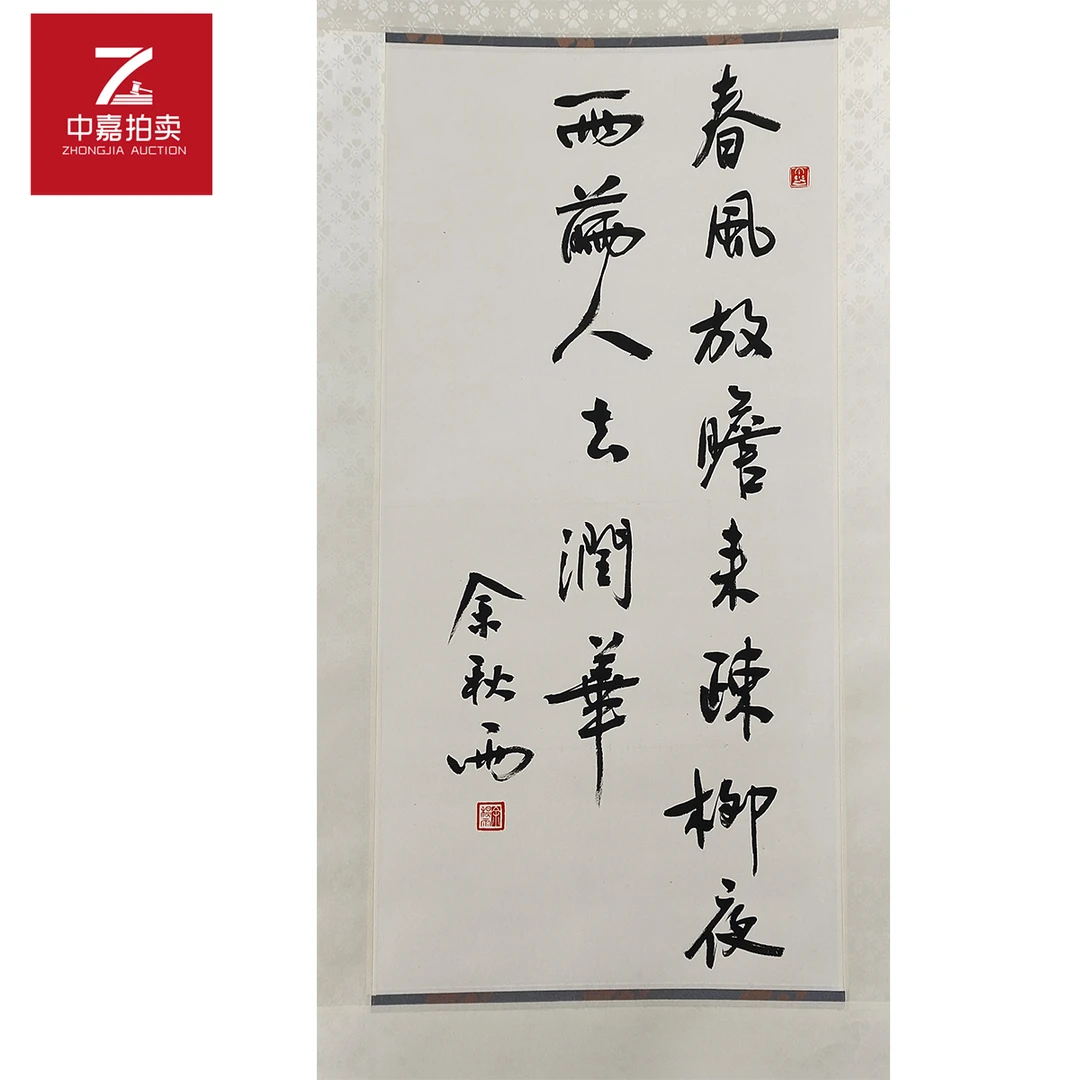 中嘉拍卖
ZHONGJIA AUCTION
春風放膽来疎柳夜
雨人去潤華
余秋雨